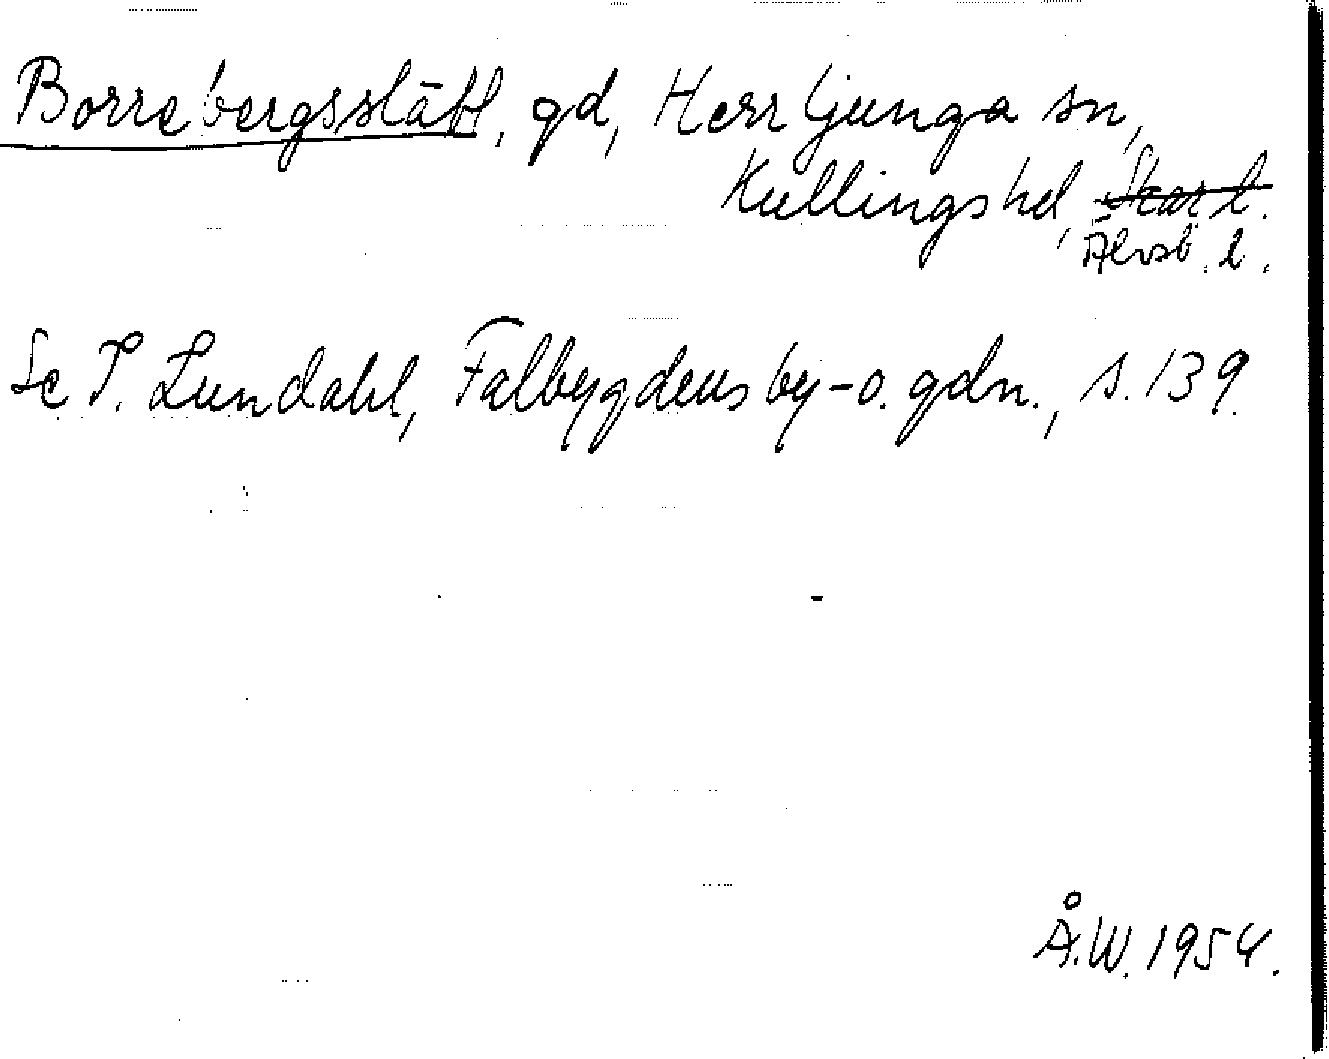 Borrebergsslätt, gd, Herrljunga sn,
Kullings hd, Skar. l.
Älvsb. l.
Se P. Lundahl, Falbygdens by- o. gdn., s. 139.
Å.W. 1954.